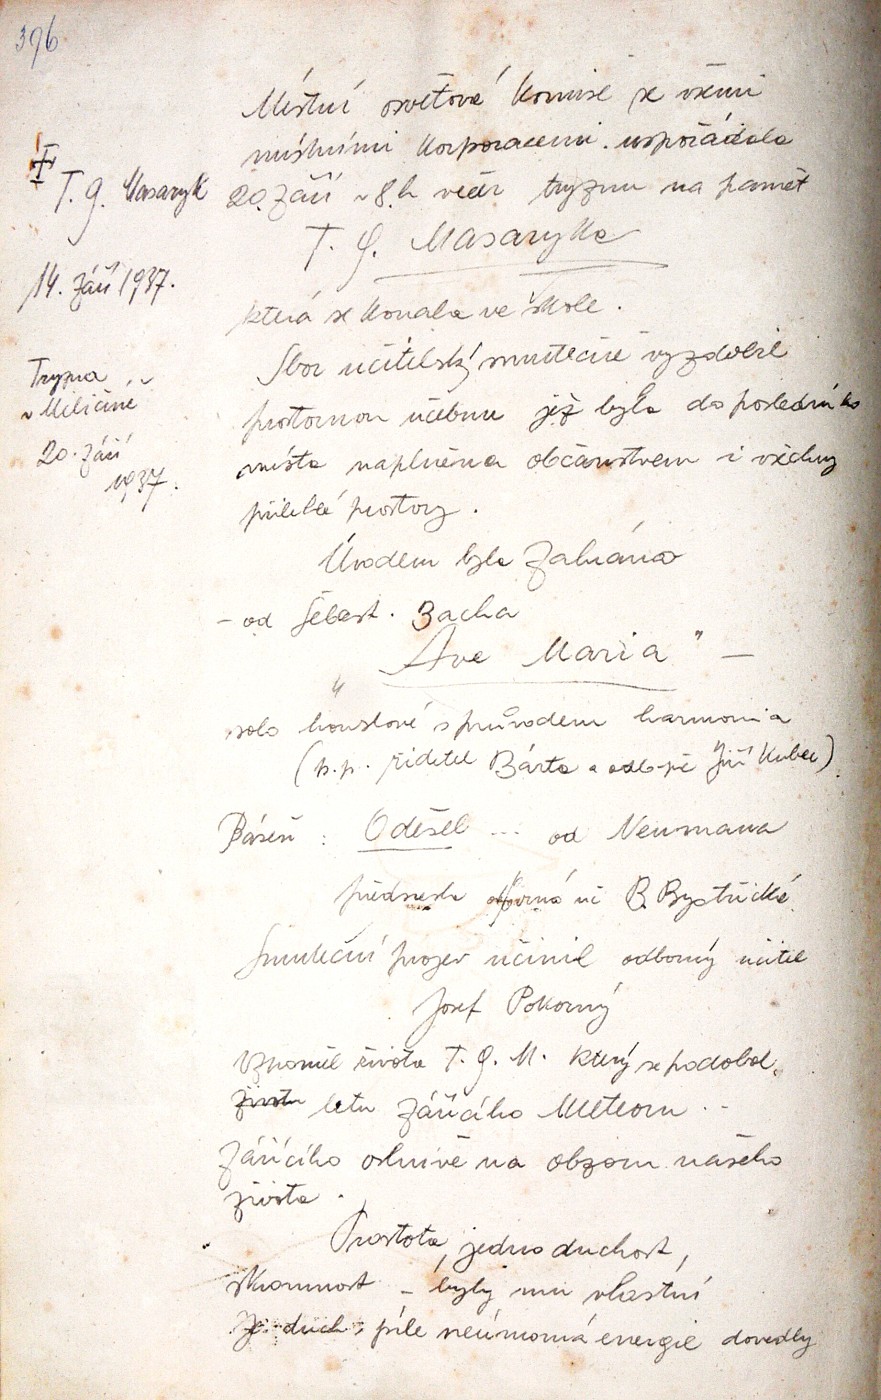 396
Místní osvětová komise se všemi
místními korporacemi uspořádala
20. září v 8. h večer tryznu na paměť
T. G. Masaryka
která se konala ve škole.
Sbor učitelský smutečně vyzdobil
prostornou učebnu jež byla do posledního
místa naplněna občanstvem i všechny
přilehlé prostory.
Úvodem byla zahrána
- od Šebest. Bacha
"Ave Maria" -
solo houslové s průvodem harmonia
(p.p. řiditel Bárta a Jiří Kubec)
Báseň: Odešel ... od Neumana
přednesla odborná uč B. Bystřická
Smuteční projev učinil odborný učitel
Josef Pokorný
Vzpoměl života T. G. M. který se podobal
životu letu zářícího Meteoru ..
Zářícího oslnivě na obzoru našeho
života.
Prostota, jednoduchost,
skromnost - byly mu vlastní
duch, píle neúmorná energie dovedly
† T. G. Masaryk
14. září 1937.
Tryzna
v Miličíně
20. září
1937.